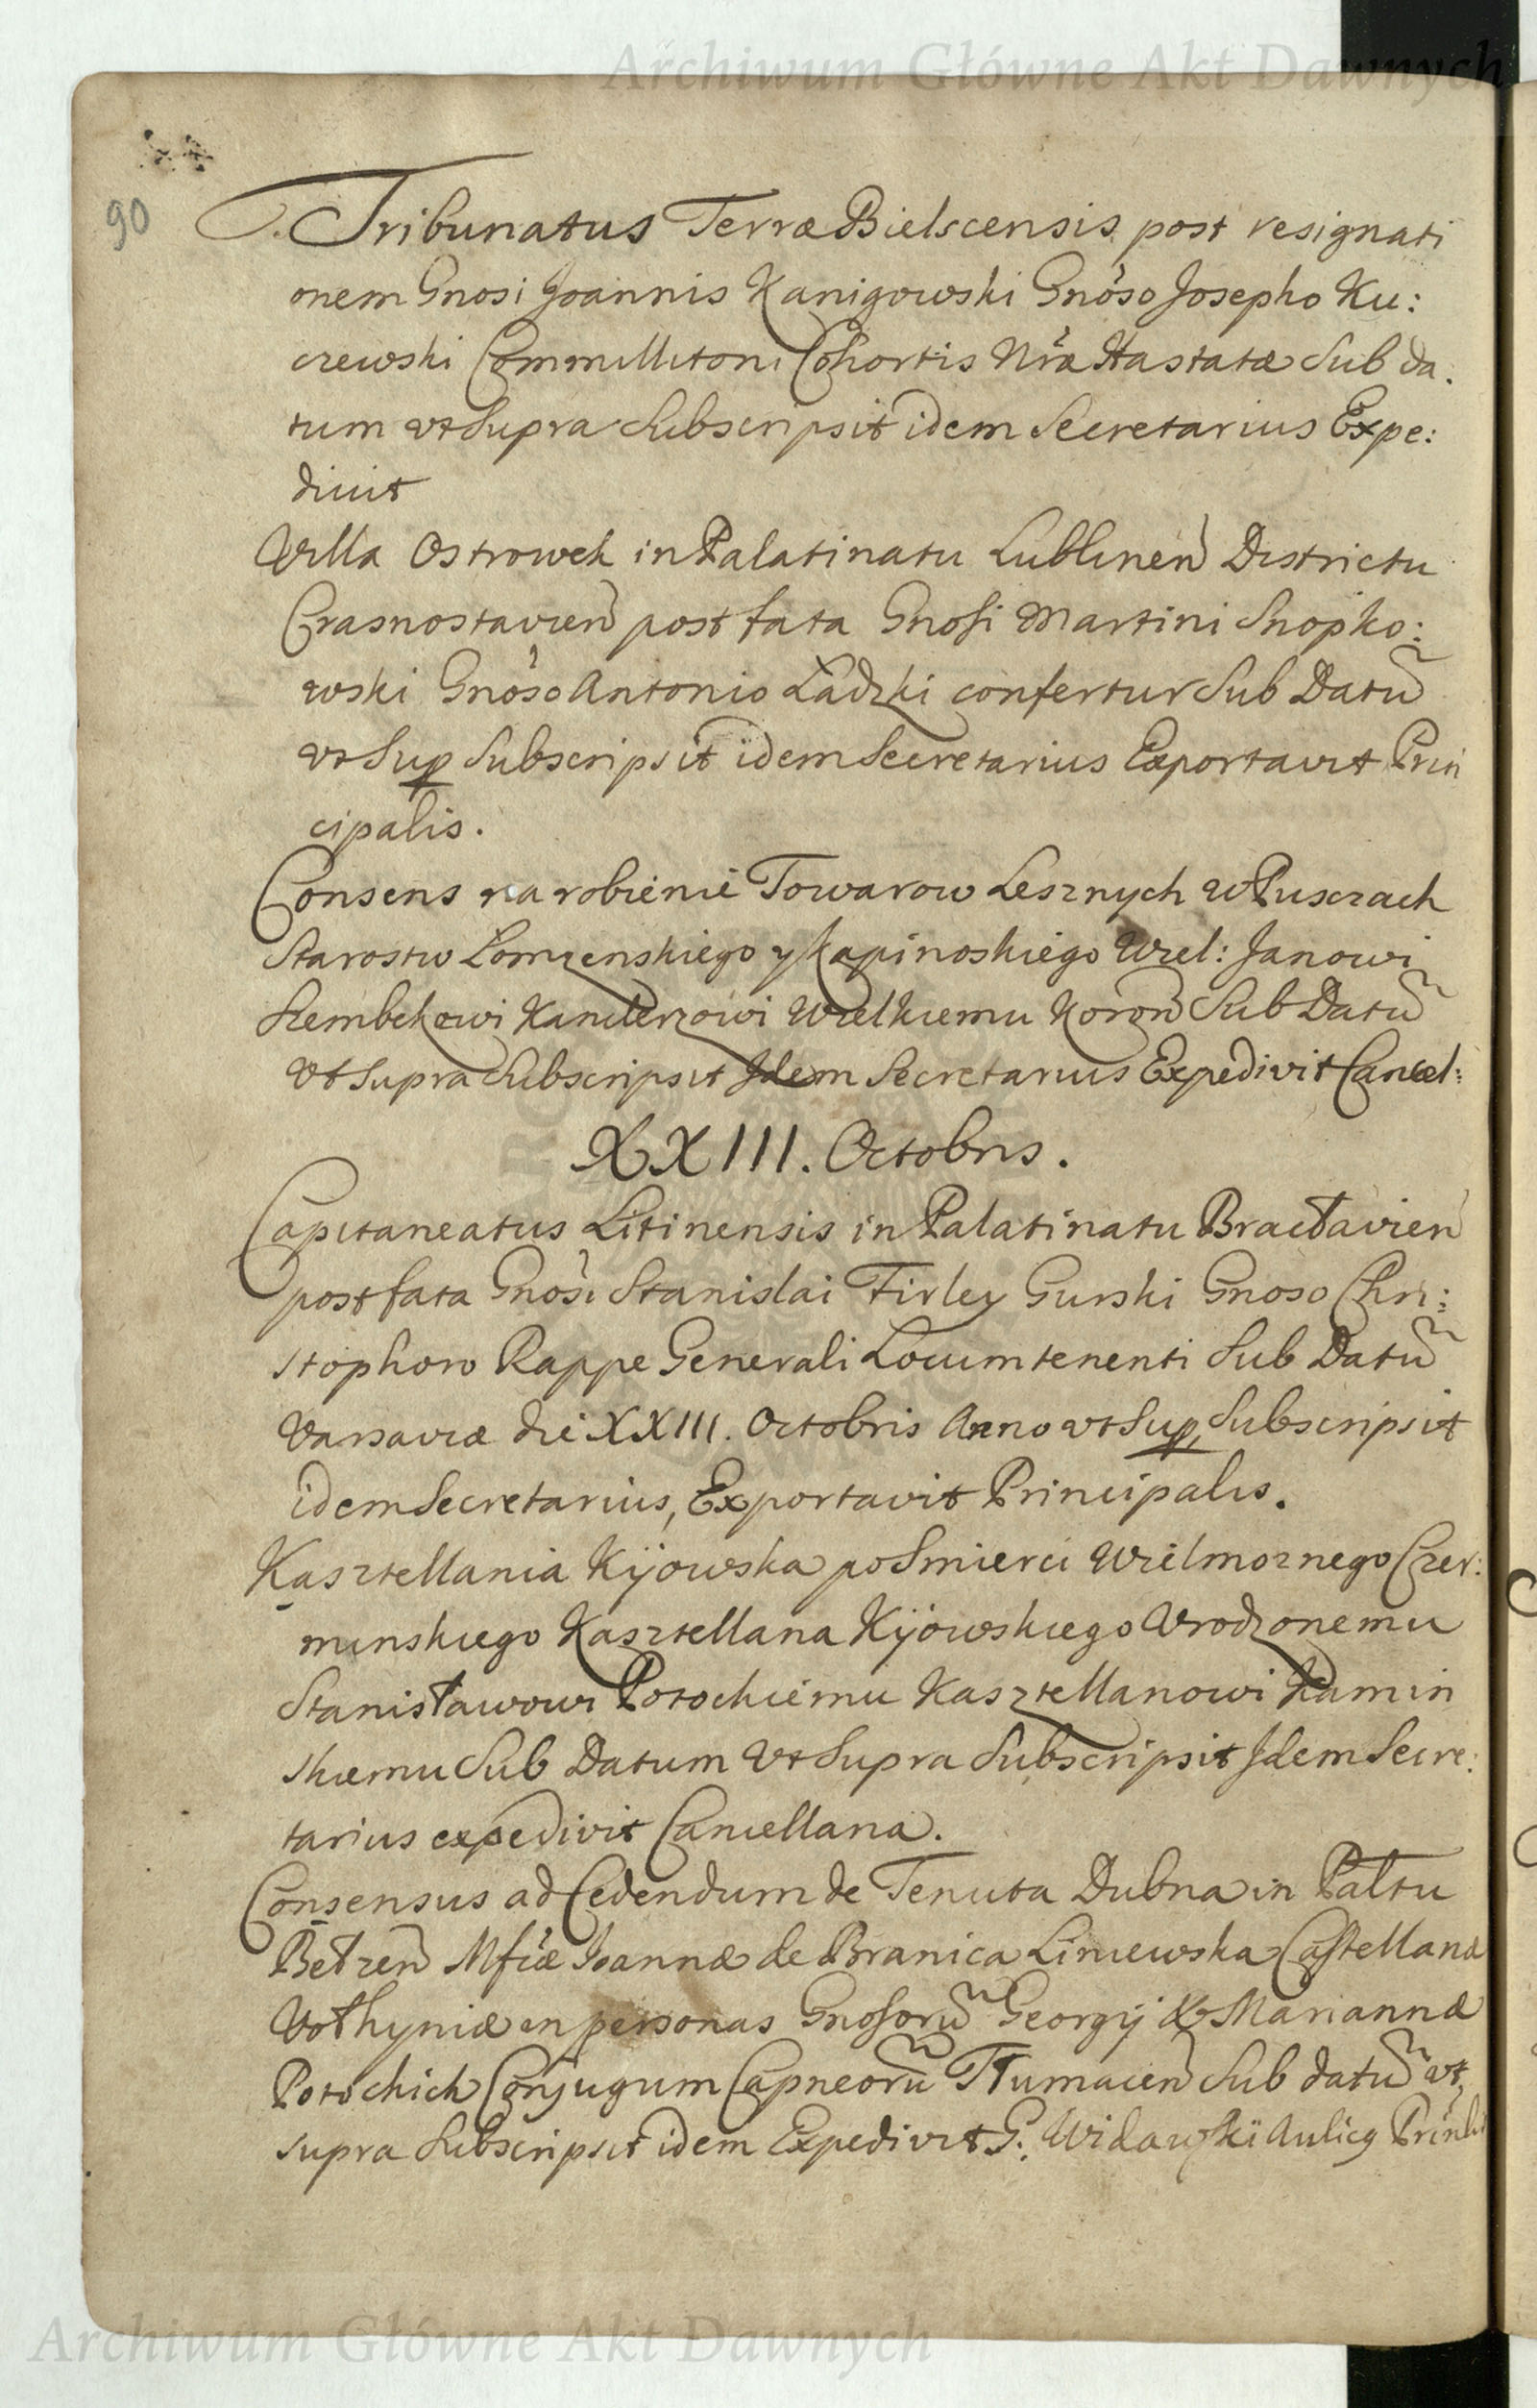 Archiwum Główne Akt Dawnych
90
Tribunatus Terræ Bielscensis post resignati
onem Gnosi Joannis Kanigowski Gnoso Josepho Ku:
czewski Commillitoni Cohortis Nræ Hastatæ Sub da.
tum vt Supra Subscripsit idem Secretarius Expe:
diuit
Villa Ostrowek in Palatinatu Lublinen Districtu
Crasnostavien post fata Gnosi Martini Snopko:
wski Gnoso Antonio Ladzki confertur Sub Datu
vt Sup Subscripsit idem Secretarius Exportavit Prin
cipalis.
Consens na robienie Towarow Lesznych w Pusczach
Starostw Lomzenskiego y Kapinoskiego Wiel: Janowi
Szembekowi Kanclerzowi Wielkiemu Koron Sub Datu
Vt Supra Subscripsit Idem Secretarius Expedivit Cancel:
XXIII. Octobris.
Capitaneatus Litinensis in Palatinatu Bracłavien
post fata Gnosi Stanislai Firley Gurski Gnoso Chri:
stophoro Rappe Generali Locumtenenti Sub Datu
Varsaviæ die XXIII. Octobris Anno vt Sup, Subscripsit
idem Secretarius, Exportavit Principalis.
Kasztellania Kijowska po Smierci Wielmoznego Czer:
minskiego Kasztellana Kijowskiego Vrodzonemu
Stanisławowi Potockiemu Kasztellanowi Kamin
skiemu Sub Datum Vt Supra Subscripsit Idem Secre:
tarius expedivit Cancellaria.
Consensus ad Cedendum de Tenuta Dubna in Paltu
Bełzen Mfcæ Joannæ de Branica Liniewska Castellanæ
Vołhyniæ in personas Gnosoru Georgij & Mariannæ
Potockich Conjugum Capneoru Tłumacen Sub datu vt,
supra Subscripsit idem Expedivit G. Widawski Aulicq
Archiwum Główne Akt Dawnych